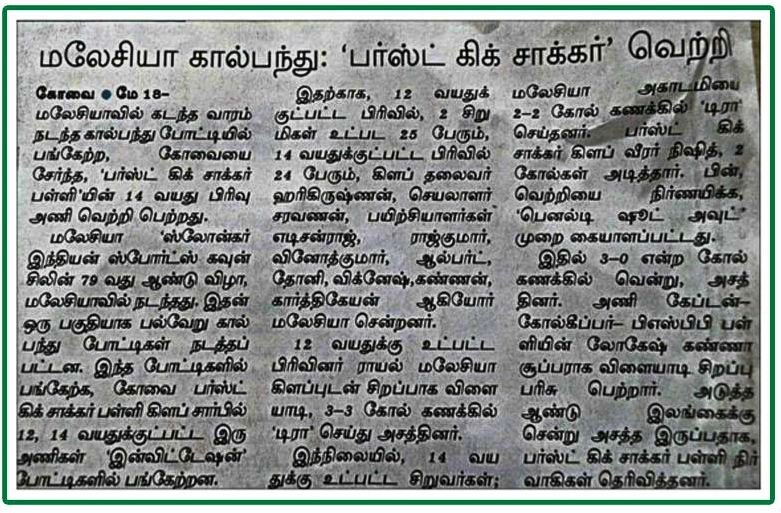 மலேசியா கால்பந்து: ‘பர்ஸ்ட் கிக் சாக்கர்’ வெற்றி
கோவை ● மே 18–
மலேசியாவில் கடந்த வாரம்
நடந்த கால்பந்து போட்டியில்
பங்கேற்ற, கோவையை
சேர்ந்த, ‘பர்ஸ்ட் கிக் சாக்கர்
பள்ளி’யின் 14 வயது பிரிவு
அணி வெற்றி பெற்றது.
மலேசியா ‘ஸ்லோன்கர்
இந்தியன் ஸ்போர்ட்ஸ் கவுன்
சிலின் 79 வது ஆண்டு விழா,
மலேசியாவில் நடந்தது. இதன்
ஒரு பகுதியாக பல்வேறு கால்
பந்து போட்டிகள் நடத்தப்
பட்டன. இந்த போட்டிகளில்
பங்கேற்க, கோவை பர்ஸ்ட்
கிக் சாக்கர் பள்ளி கிளப் சார்பில்
12, 14 வயதுக்குட்பட்ட இரு
அணிகள் ‘இன்விட்டேஷன்’
போட்டிகளில் பங்கேற்றன.
இதற்காக, 12 வயதுக்
குட்பட்ட பிரிவில், 2 சிறு
மிகள் உட்பட 25 பேரும்,
14 வயதுக்குட்பட்ட பிரிவில்
24 பேரும், கிளப் தலைவர்
ஹரிகிருஷ்ணன், செயலாளர்
சரவணன், பயிற்சியாளர்கள்
எடிசன்ராஜ், ராஜ்குமார்,
வினோத்குமார், ஆல்பர்ட்,
தோனி, விக்னேஷ், கண்ணன்,
கார்த்திகேயன் ஆகியோர்
மலேசியா சென்றனர்.
12 வயதுக்கு உட்பட்ட
பிரிவினர் ராயல் மலேசியா
கிளப்புடன் சிறப்பாக விளை
யாடி, 3-3 கோல் கணக்கில்
‘டிரா’ செய்து அசத்தினர்.
இந்நிலையில், 14 வய
துக்கு உட்பட்ட சிறுவர்கள்;
மலேசியா அகாடமியை
2-2 கோல் கணக்கில் ‘டிரா’
செய்தனர். பர்ஸ்ட் கிக்
சாக்கர் கிளப் வீரர் நிஷித், 2
கோல்கள் அடித்தார். பின்,
வெற்றியை நிர்ணயிக்க,
‘பெனல்டி ஷூட் அவுட்’
முறை கையாளப்பட்டது.
இதில் 3-0 என்ற கோல்
கணக்கில் வென்று, அசத்
தினர். அணி கேப்டன்–
கோல்கீப்பர்– பிஎஸ்பிபி பள்
ளியின் லோகேஷ் கண்ணா
சூப்பராக விளையாடி சிறப்பு
பரிசு பெற்றார். அடுத்த
ஆண்டு இலங்கைக்கு
சென்று அசத்த இருப்பதாக,
பர்ஸ்ட் கிக் சாக்கர் பள்ளி நிர்
வாகிகள் தெரிவித்தனர்.